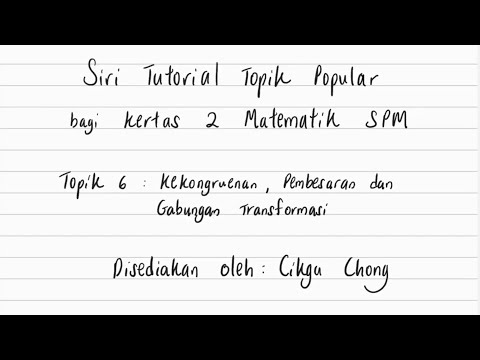 Siri Tutorial Topik Popular
bagi kertas 2 Matematik SPM
Topik 6 : Kekongruenan, Pembesaran dan
Gabungan Transformasi
Disediakan oleh : Cikgu Chong